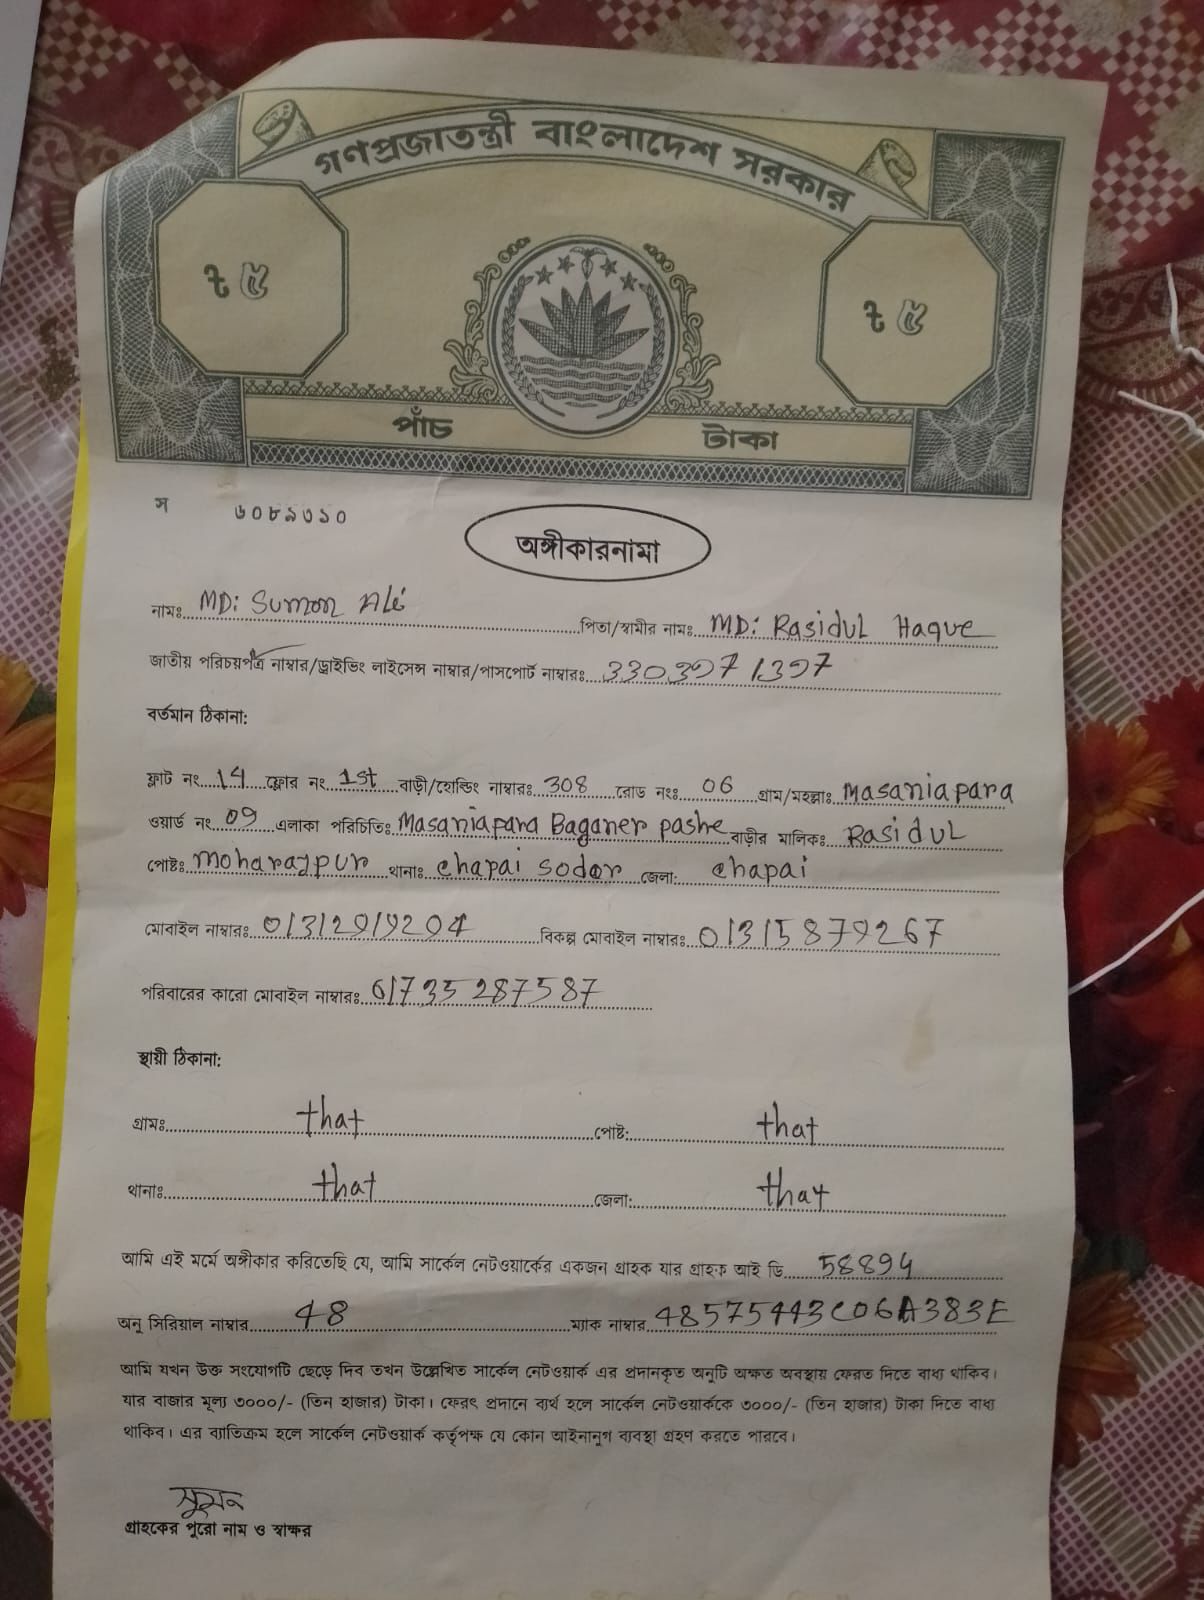 গণপ্রজাতন্ত্রী বাংলাদেশ সরকার
৳ ৫
৳ ৫
পাঁচ টাকা
স ৬০৮৯৩১০
অঙ্গীকারনামা
নামঃ MD: Sumon Ali পিতা/স্বামীর নামঃ MD: Rasidul Haque
জাতীয় পরিচয়পত্র নাম্বার/ড্রাইভিং লাইসেন্স নাম্বার/পাসপোর্ট নাম্বারঃ 3303971397
বর্তমান ঠিকানা:
ফ্লাট নং 14 ফ্লোর নং 1st বাড়ী/হোল্ডিং নাম্বারঃ 308 রোড নংঃ 06 গ্রাম/মহল্লাঃ Masaniapara
ওয়ার্ড নং 09 এলাকা পরিচিতিঃ Masaniapara Baganer pashe বাড়ীর মালিকঃ Rasidul
পোষ্টঃ Moharajpur থানাঃ chapai sodor জেলা: chapai
মোবাইল নাম্বারঃ 01312919294 বিকল্প মোবাইল নাম্বারঃ 01315879267
পরিবারের কারো মোবাইল নাম্বারঃ 01735287587
স্থায়ী ঠিকানা:
গ্রামঃ that পোষ্ট: that
থানাঃ that জেলা: that
আমি এই মর্মে অঙ্গীকার করিতেছি যে, আমি সার্কেল নেটওয়ার্কের একজন গ্রাহক যার গ্রাহক আই ডি 58894
অনু সিরিয়াল নাম্বার 48 ম্যাক নাম্বার 48575443C06A383E
আমি যখন উক্ত সংযোগটি ছেড়ে দিব তখন উল্লেখিত সার্কেল নেটওয়ার্ক এর প্রদানকৃত অনুটি অক্ষত অবস্থায় ফেরত দিতে বাধ্য থাকিব।
যার বাজার মূল্য ৩০০০/- (তিন হাজার) টাকা। ফেরৎ প্রদানে ব্যর্থ হলে সার্কেল নেটওয়ার্ককে ৩০০০/- (তিন হাজার) টাকা দিতে বাধ্য
থাকিব। এর ব্যতিক্রম হলে সার্কেল নেটওয়ার্ক কর্তৃপক্ষ যে কোন আইনানুগ ব্যবস্থা গ্রহণ করতে পারবে।
সুমন
গ্রাহকের পুরো নাম ও স্বাক্ষর